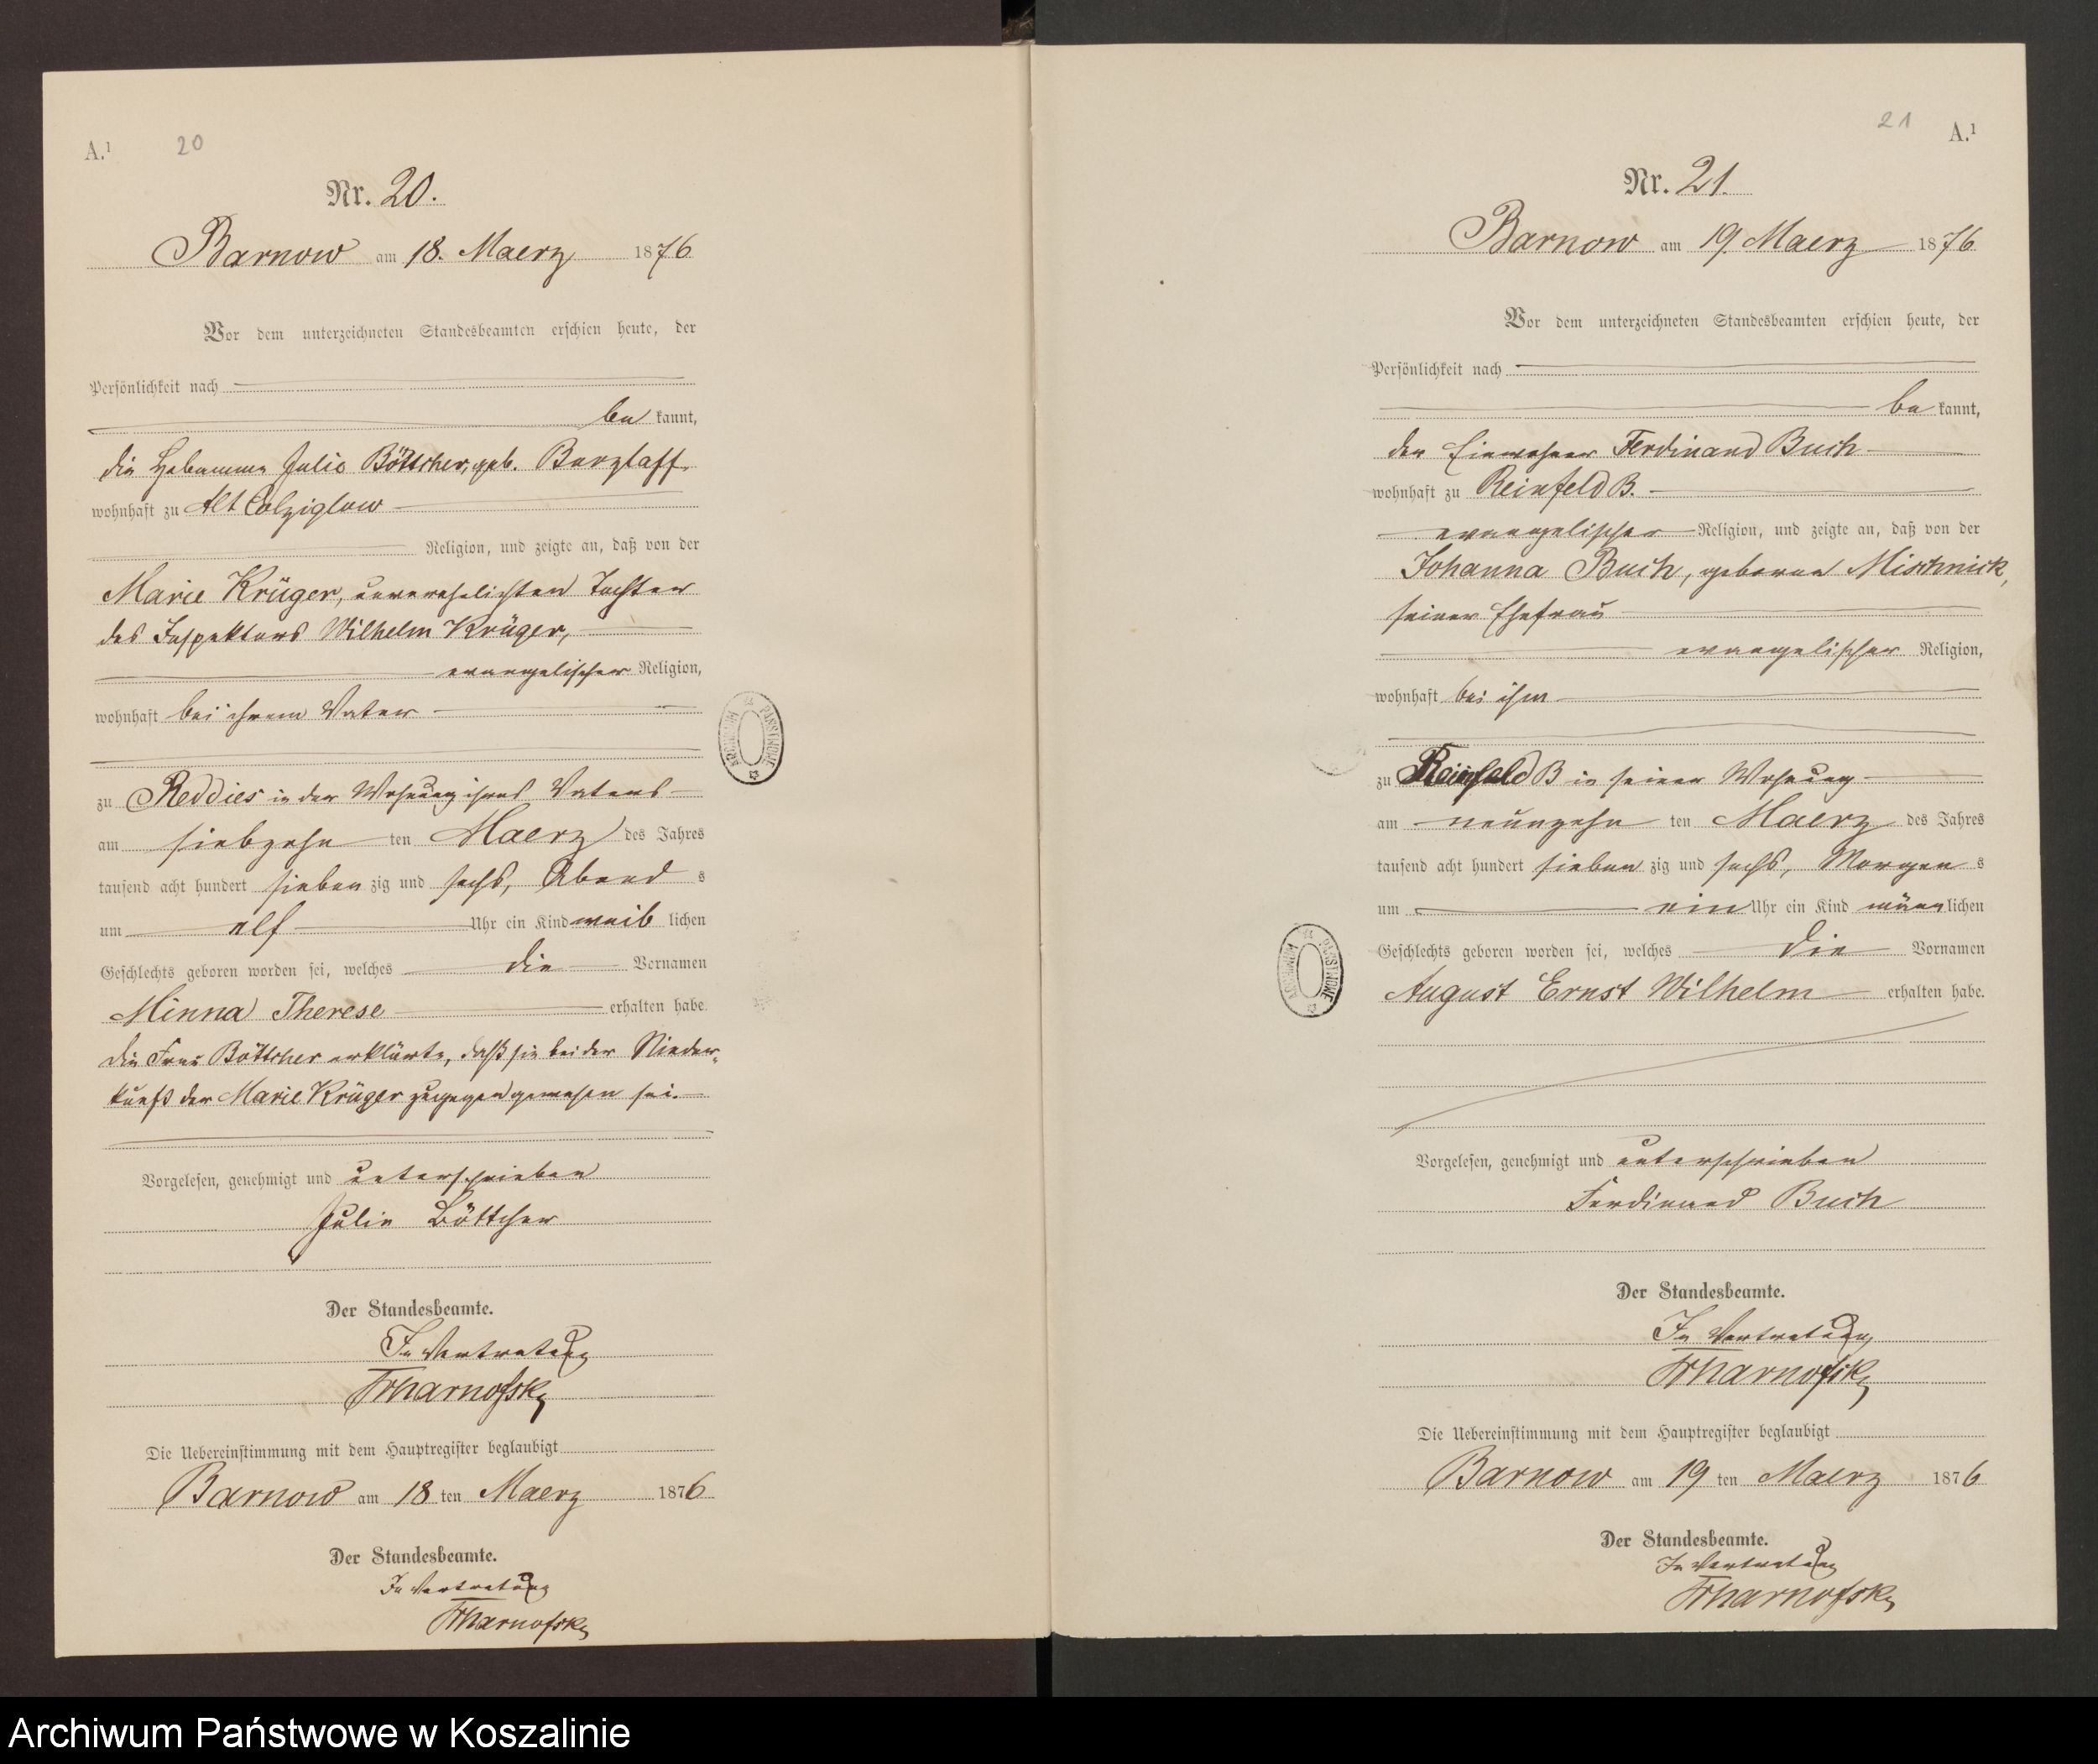 A.¹ 20
Nr. 20.
Barnow am 18. Maerz 1876
Vor dem unterzeichneten Standesbeamten erschien heute, der
Persönlichkeit nach
be kannt,
die Hebamme Julie Böttcher, geb. Barzlaff
wohnhaft zu Alt Colziglow
Religion, und zeigte an, daß von der
Marie Krüger, unverehelichten Tochter
des Inspektors Wilhelm Krüger,
evangelischer Religion,
wohnhaft bei ihrem Vater
zu Reddies in der Wohnung ihres Vaters
am siebzehn ten Maerz des Jahres
tausend acht hundert sieben zig und sechs, Abend s
um elf Uhr ein Kind weib lichen
Geschlechts geboren worden sei, welches die Vornamen
Minna Therese erhalten habe.
Die Frau Böttcher erklärte, daß sie bei der Nieder-
kunft der Marie Krüger zugegen gewesen sei.
Vorgelesen, genehmigt und unterschrieben
Julie Böttcher
Der Standesbeamte.
In Vertretung
Die Uebereinstimmung mit dem Hauptregister beglaubigt
Barnow am 18 ten Maerz 1876
Der Standesbeamte.
In Vertretung
ARCHIWUM PAŃSTWOWE
21 A.¹
Nr. 21.
Barnow am 19. Maerz 1876
Vor dem unterzeichneten Standesbeamten erschien heute, der
Persönlichkeit nach
be kannt,
der Einwohner Ferdinand Buch
wohnhaft zu Reinfeld B.
evangelischer Religion, und zeigte an, daß von der
Johanna Buch, geborne Mischnick,
seiner Ehefrau
evangelischer Religion,
wohnhaft bei ihm
zu Reinfeld B in seiner Wohnung
am neunzehn ten Maerz des Jahres
tausend acht hundert sieben zig und sechs, Morgen s
um ein Uhr ein Kind männ lichen
Geschlechts geboren worden sei, welches die Vornamen
August Ernst Wilhelm erhalten habe.
Vorgelesen, genehmigt und unterschrieben
Ferdinand Buch
Der Standesbeamte.
In Vertretung
Die Uebereinstimmung mit dem Hauptregister beglaubigt
Barnow am 19 ten Maerz 1876
Der Standesbeamte.
In Vertretung
ARCHIWUM PAŃSTWOWE
Archiwum Państwowe w Koszalinie